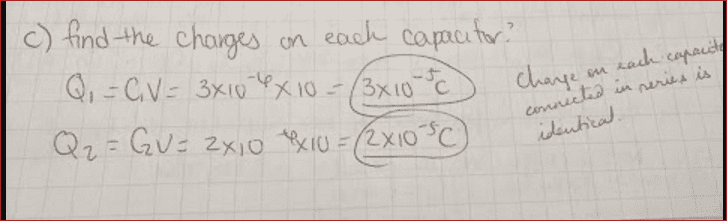 c) find the charges on each capacitor?
Q₁ = C₁V = 3×10⁻⁶×10 = 3×10⁻⁵C
Q₂ = C₂V = 2×10⁻⁶×10 = 2×10⁻⁵C
Charge on each capacito
connected in series is
identical.